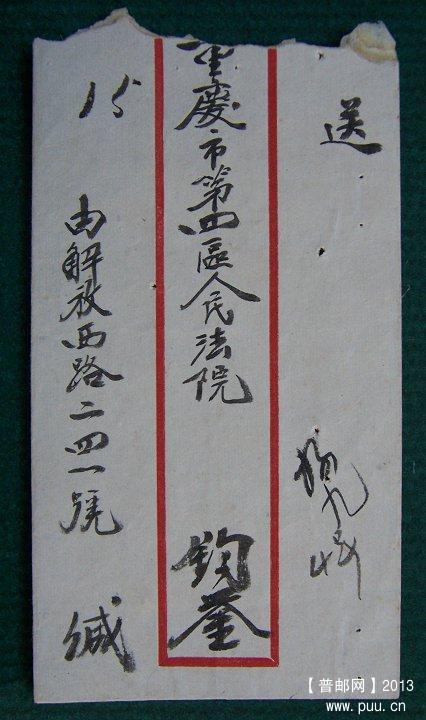 送
重慶市第四區人民法院
鈞鑒
15
由解放西路二四一號
緘
【普邮网】2013
www.puu.cn